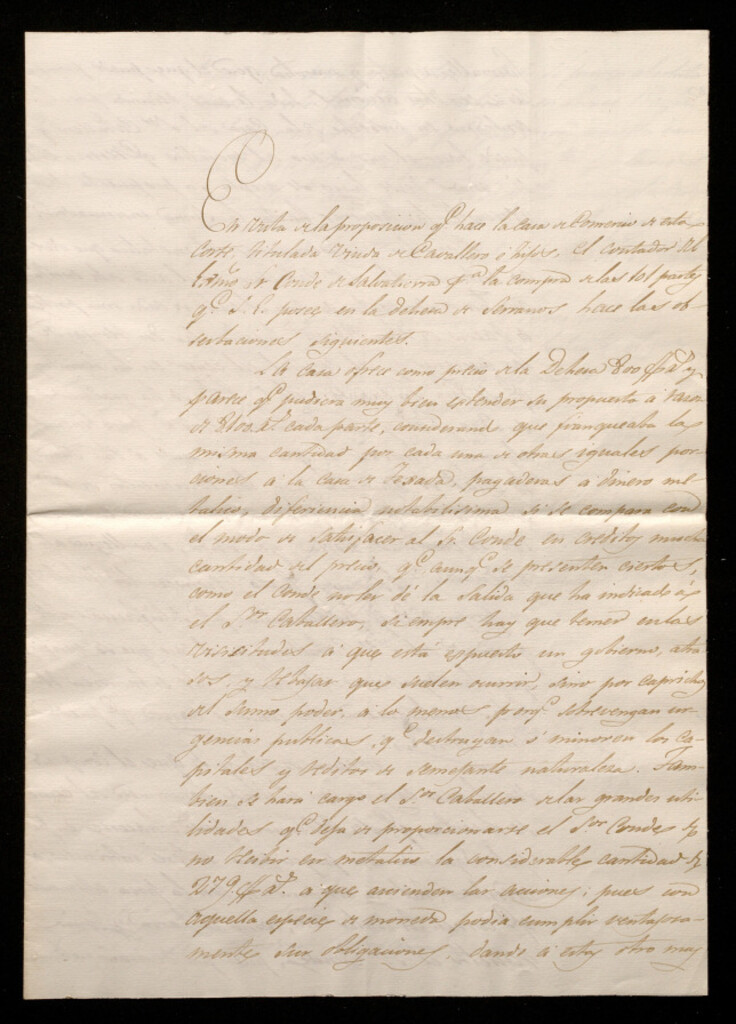 En vista de la proposicion q.e hace la casa de Comercio de esta
Corte, titulada Viuda de Cavallero é hijos, el contador del
Exmo. Sr. Conde de Salvatierra p.a la compra de las 101 partes
q.e S. E. posee en la dehesa de Serranos hace las ob-
servaciones siguientes.
La casa ofrece como precio de la Dehesa 800 rs. y
parece q.e pudiera muy bien estender su propuesta á razon
de 2100 rs. cada parte, considerand que franqueaba la
misma cantidad por cada una de otras iguales por-
ciones á la casa de Texada, pagaderas á dinero me-
talico, diferiencia notabilisima si se compara con
el modo de satisfacer al Sr. Conde en creditos mucha
cantidad del precio, q.e aunq.e se presenten ciertos,
como el Conde no les dé la Salida que ha indicado
el S.or Caballero, siempre hay que temer en las
vicisitudes á que está espuesto un gobierno, atra-
sos, y rebajas que suelen ocurrir, sino por capricho
del sumo poder, á lo menos porq.e sobrevengan ur-
gencias publicas, q.e destruyan ó minoren los ca-
pitales y reditos de semejante naturaleza. Tam-
bien se hará cargo el S.or Caballero de las grandes uti-
lidades q.e deja de proporcionarse el S.or Conde de
no recibir en metalico la considerable cantidad de
279 rs. á que ascienden las acciones, pues con
aquella especie de moneda podia cumplir ventajosa-
mente sus obligaciones, dando á estas otro muy